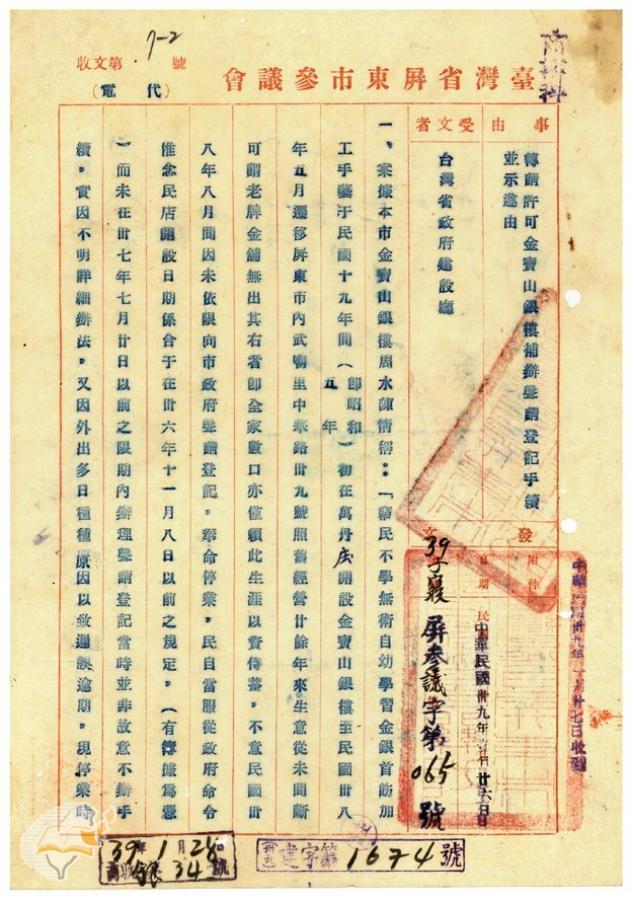 臺灣省屏東市參議會
（代電）
收文第 號
7-2
事由
轉請許可金寶山銀樓補辦聲請登記手續
並示遵由
受文者
台灣省政府建設廳
發文
附件
日期
中華民國卅九年 月廿六日
39子襄
屏參議字第065號
中華民國卅九年一月廿七日收到
一、案據本市金寶山銀樓周水陳情稱：「竊民不學無術自幼學習金銀首飾加
工手藝于民國十九年間（即昭和五年）初在萬丹庄開設金寶山銀樓至民國廿八
年五月遷移屏東市內武廟里中華路卅九號照舊經營廿餘年來生意從未間斷
可謂老牌金舖無出其右者卽全家數口亦僅賴此生涯以資侍蓄。不意民國卅
八年八月間因未依限向市政府聲請登記。奉命停業。民自當服從政府命令
惟念民店開設日期係合于在卅六年十一月八日以前之規定。（有 據爲憑
）而未在卅七年七月廿日以前之限期內辦理聲請登記當時並非故意不辦手
續。實因不明詳細辦法。又因外出多日種種原因以致遲誤逾期。現停業時
39年1月28日
34號
建字第1674號